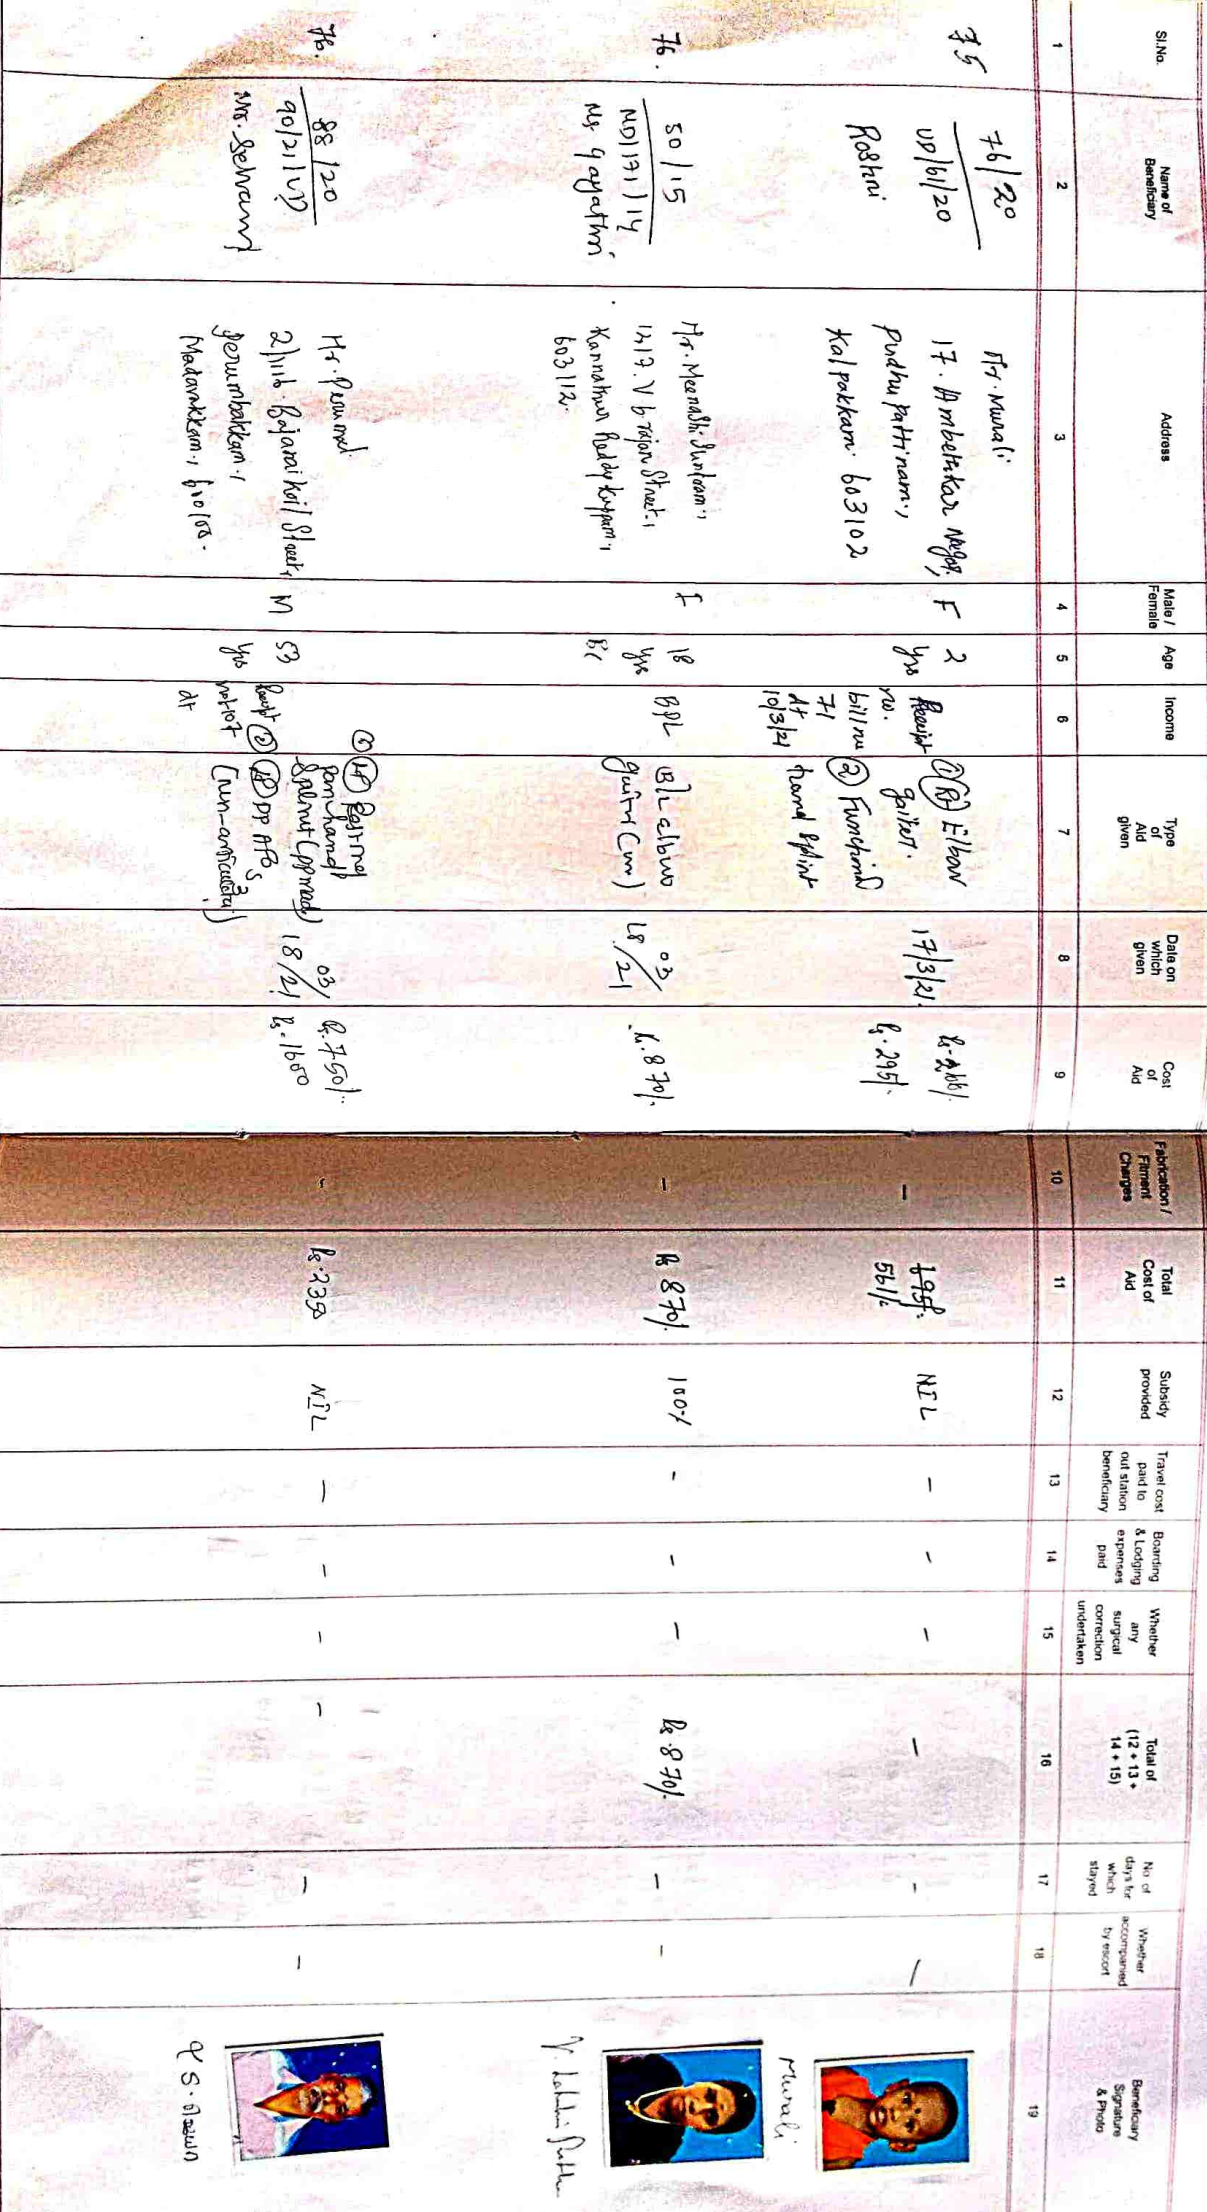 Sl.No.
Name of
Beneficiary
Address
Male /
Female
Age
Income
Type
of
Aid
given
Date on
which
given
Cost
of
Aid
Fabrication /
Fitment
Charges
Total
Cost of
Aid
Subsidy
provided
Travel cost
paid to
out station
beneficiary
Boarding
& Lodging
expenses
paid
Whether
any
surgical
correction
undertaken
Total of
(12 + 13 +
14 + 15)
No. of
days for
which
stayed
Whether
accompanied
by escort
Beneficiary
Signature
& Photo
1 2 3 4 5 6 7 8 9 10 11 12 13 14 15 16 17 18 19
75
76/20
UD/61/20
Roshni
Mr. Murali
17. Ambethkar Nagar,
Pudhupattinam,
Kalpakkam 603102
F
2
yrs
Receipt
no.
bill no
71
dt
10/3/21
① (Rt) Elbow
gaiter.
② Functional
hand splint
17/3/21.
Rs. 266/-
Rs. 295/-
-
561/-
NIL
-
-
-
-
-
-
Murali
76.
50/15
MD/171/14
Ms Gayathri
Mr. Meenashi Sundram,
Street,
Kannathur Reddykuppam,
603112.
F
18
yrs
BPL
B/L elbow
03/
18/21
Rs. 870/-
-
Rs 870/-
100%
-
-
-
Rs. 870/-
-
-
76.
88/20
90/21/UD
Mr. Selvam
Mr. Perumal
2/116. Street,
Perumbakkam,
Madavakkam, 600100.
M
53
yrs
Receipt
no 107
dt
Resting
pan hand
splint (pp made)
② PP AFO
03/
18/21
Rs. 750/-
Rs. 1600
-
Rs. 2350
NIL
-
-
-
-
-
-